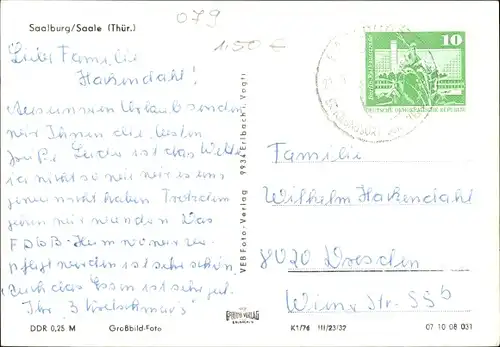 Saalburg/Saale (Thür.)
079
1,50 €
Liebe Familie
Hackendahl!
Aus unserem Urlaub senden
wir Ihnen die besten
Grüße. Leider ist das Wetter
ja nicht so wie wir es uns
gerne haben. Trotzdem
gehen wir wandern. Das
FDGB-Heim wo wir ver-
pflegt werden ist sehr schön.
Auch das Essen ist sehr gut.
Ihr
VEB Foto-Verlag 9934 Erlbach i. Vogtl
10
DEUTSCHE DEMOKRATISCHE REPUBLIK
Familie
Wilhelm Hackendahl
8020 Dresden
Wiener Str. 55b
DDR 0,25 M Großbild-Foto
FOTO VERLAG
ERLBACH
K1/76 III/23/32
07 10 08 031